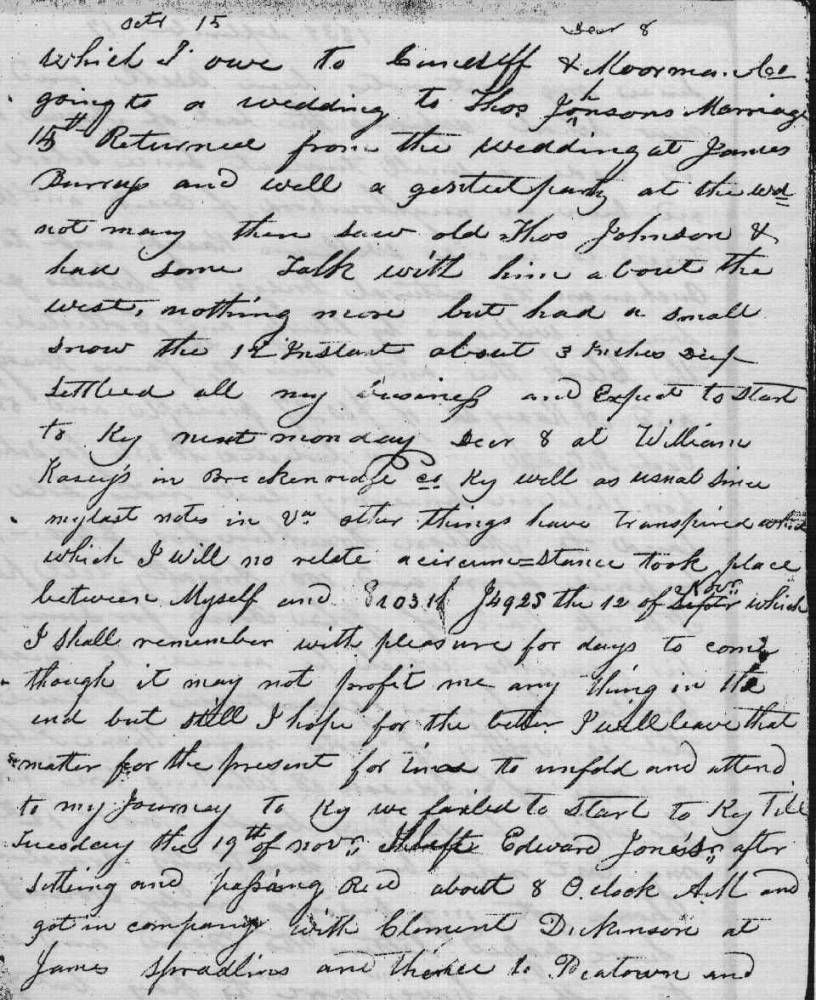 octr 15 Decr 8
which I owe to Cundiff & Moorman. Also
going to a wedding to Thos Jonsons Marriage
15th Returned from the wedding at James
Burrups and well a genteel party at the wd
not many then saw old Thos Johnson &
had some talk with him about the
west, nothing more but had a small
snow the 12 Instant about 3 Inches Deep
settled all my business and Expect to Start
to Ky next monday Decr 8 at William
Kasey's in Breckenridge co Ky well as usual since
my last notes in Va other things have transpired which
which I will no relate a circum=stance took place
between Myself and J4925 the 12 of Septr Novr which
I shall remember with pleasure for days to come
though it may not profit me any thing in the
end but still I hope for the better I will leave that
matter for the present for time to unfold and attend
to my Journey to Ky we failed to start to Ky Till
Tuesday the 19th of novr I left Edward Jones Sr after
settling and passing Recd about 8 O.clock AM and
got in company with Clement Dickinson at
James Spradlins and thence to Peatown and